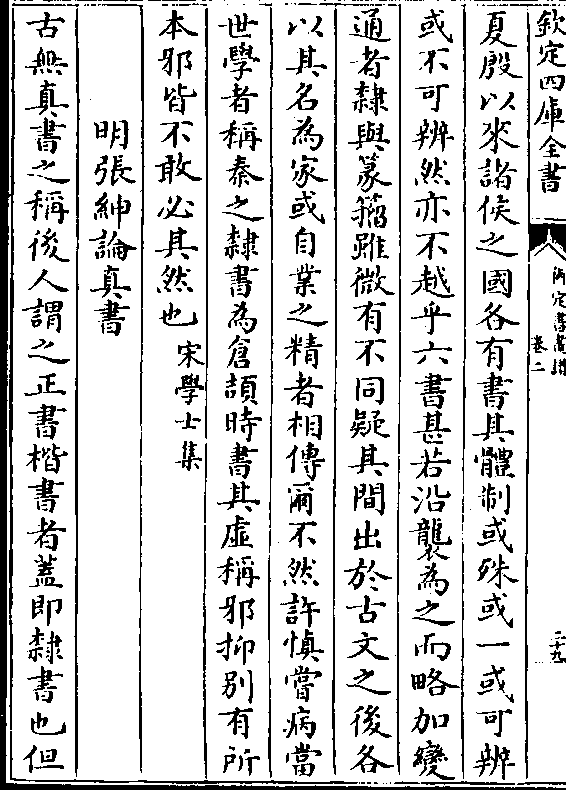 欽定四庫全書
御定書畫譜
卷二
二十九
夏殷以來諸侯之國各有書其體制或殊或一或可辨
或不可辨然亦不越乎六書甚若沿襲為之而略加變
通者隸與篆籀雖微有不同疑其間出於古文之後各
以其名為家或自業之精者相傳爾不然許慎嘗病當
世學者稱秦之隸書為倉頡時書其虛稱邪抑别有所
本邪皆不敢必其然也宋學士集
明張紳論真書
古無真書之稱後人謂之正書楷書者蓋即隸書也但